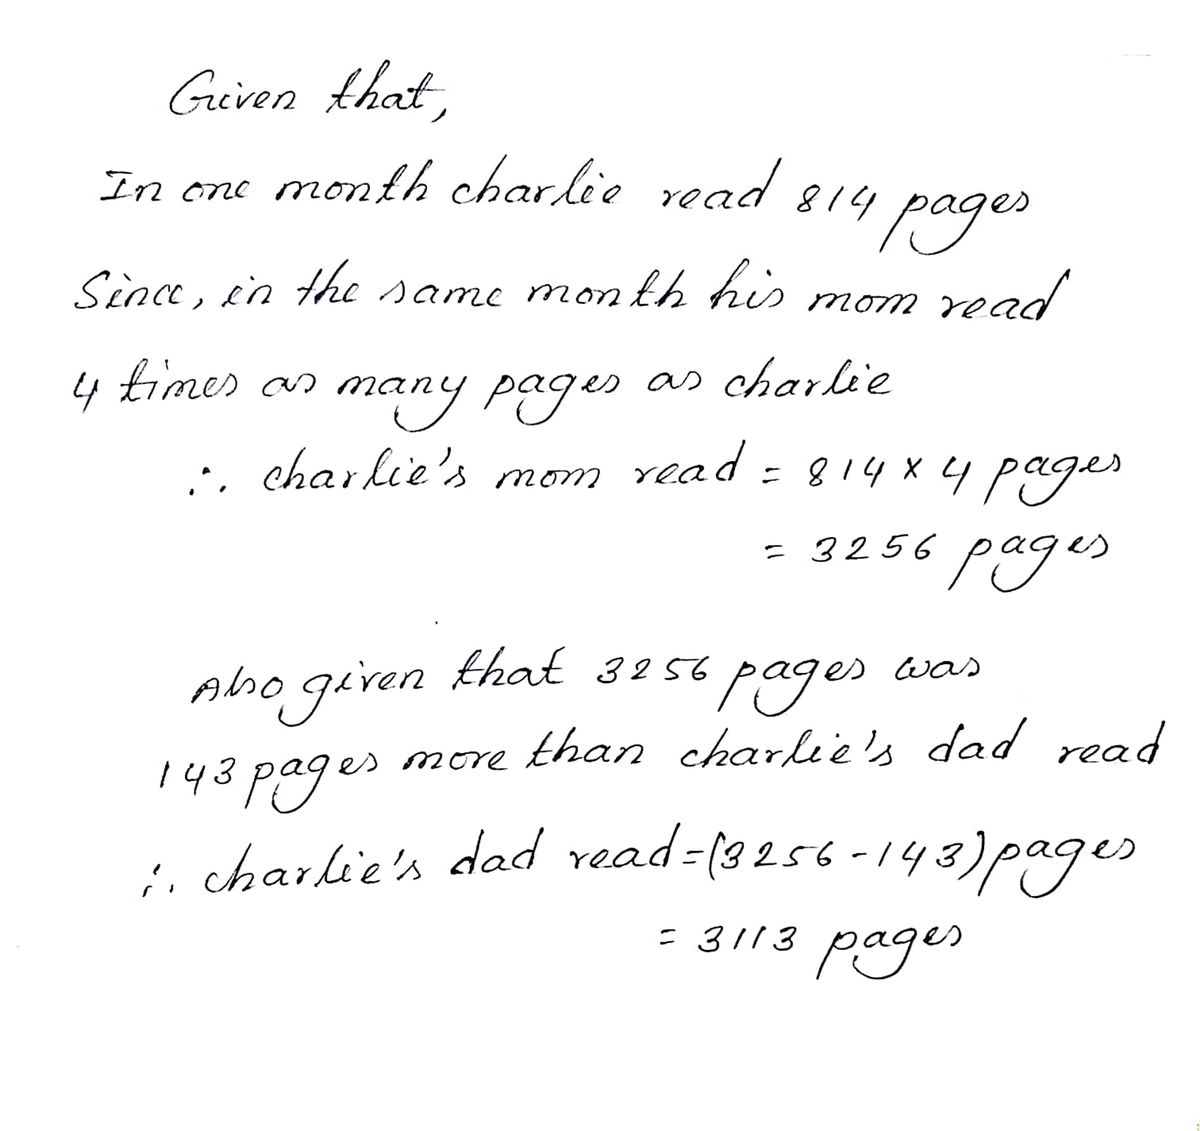 Given that,
In one month charlie read 814 pages
Since, in the same month his mom read
4 times as many pages as charlie
∴ charlie's mom read = 814 x 4 pages
= 3256 pages
Also given that 3256 pages was
143 pages more than charlie's dad read
∴ charlie's dad read=(3256-143)pages
= 3113 pages